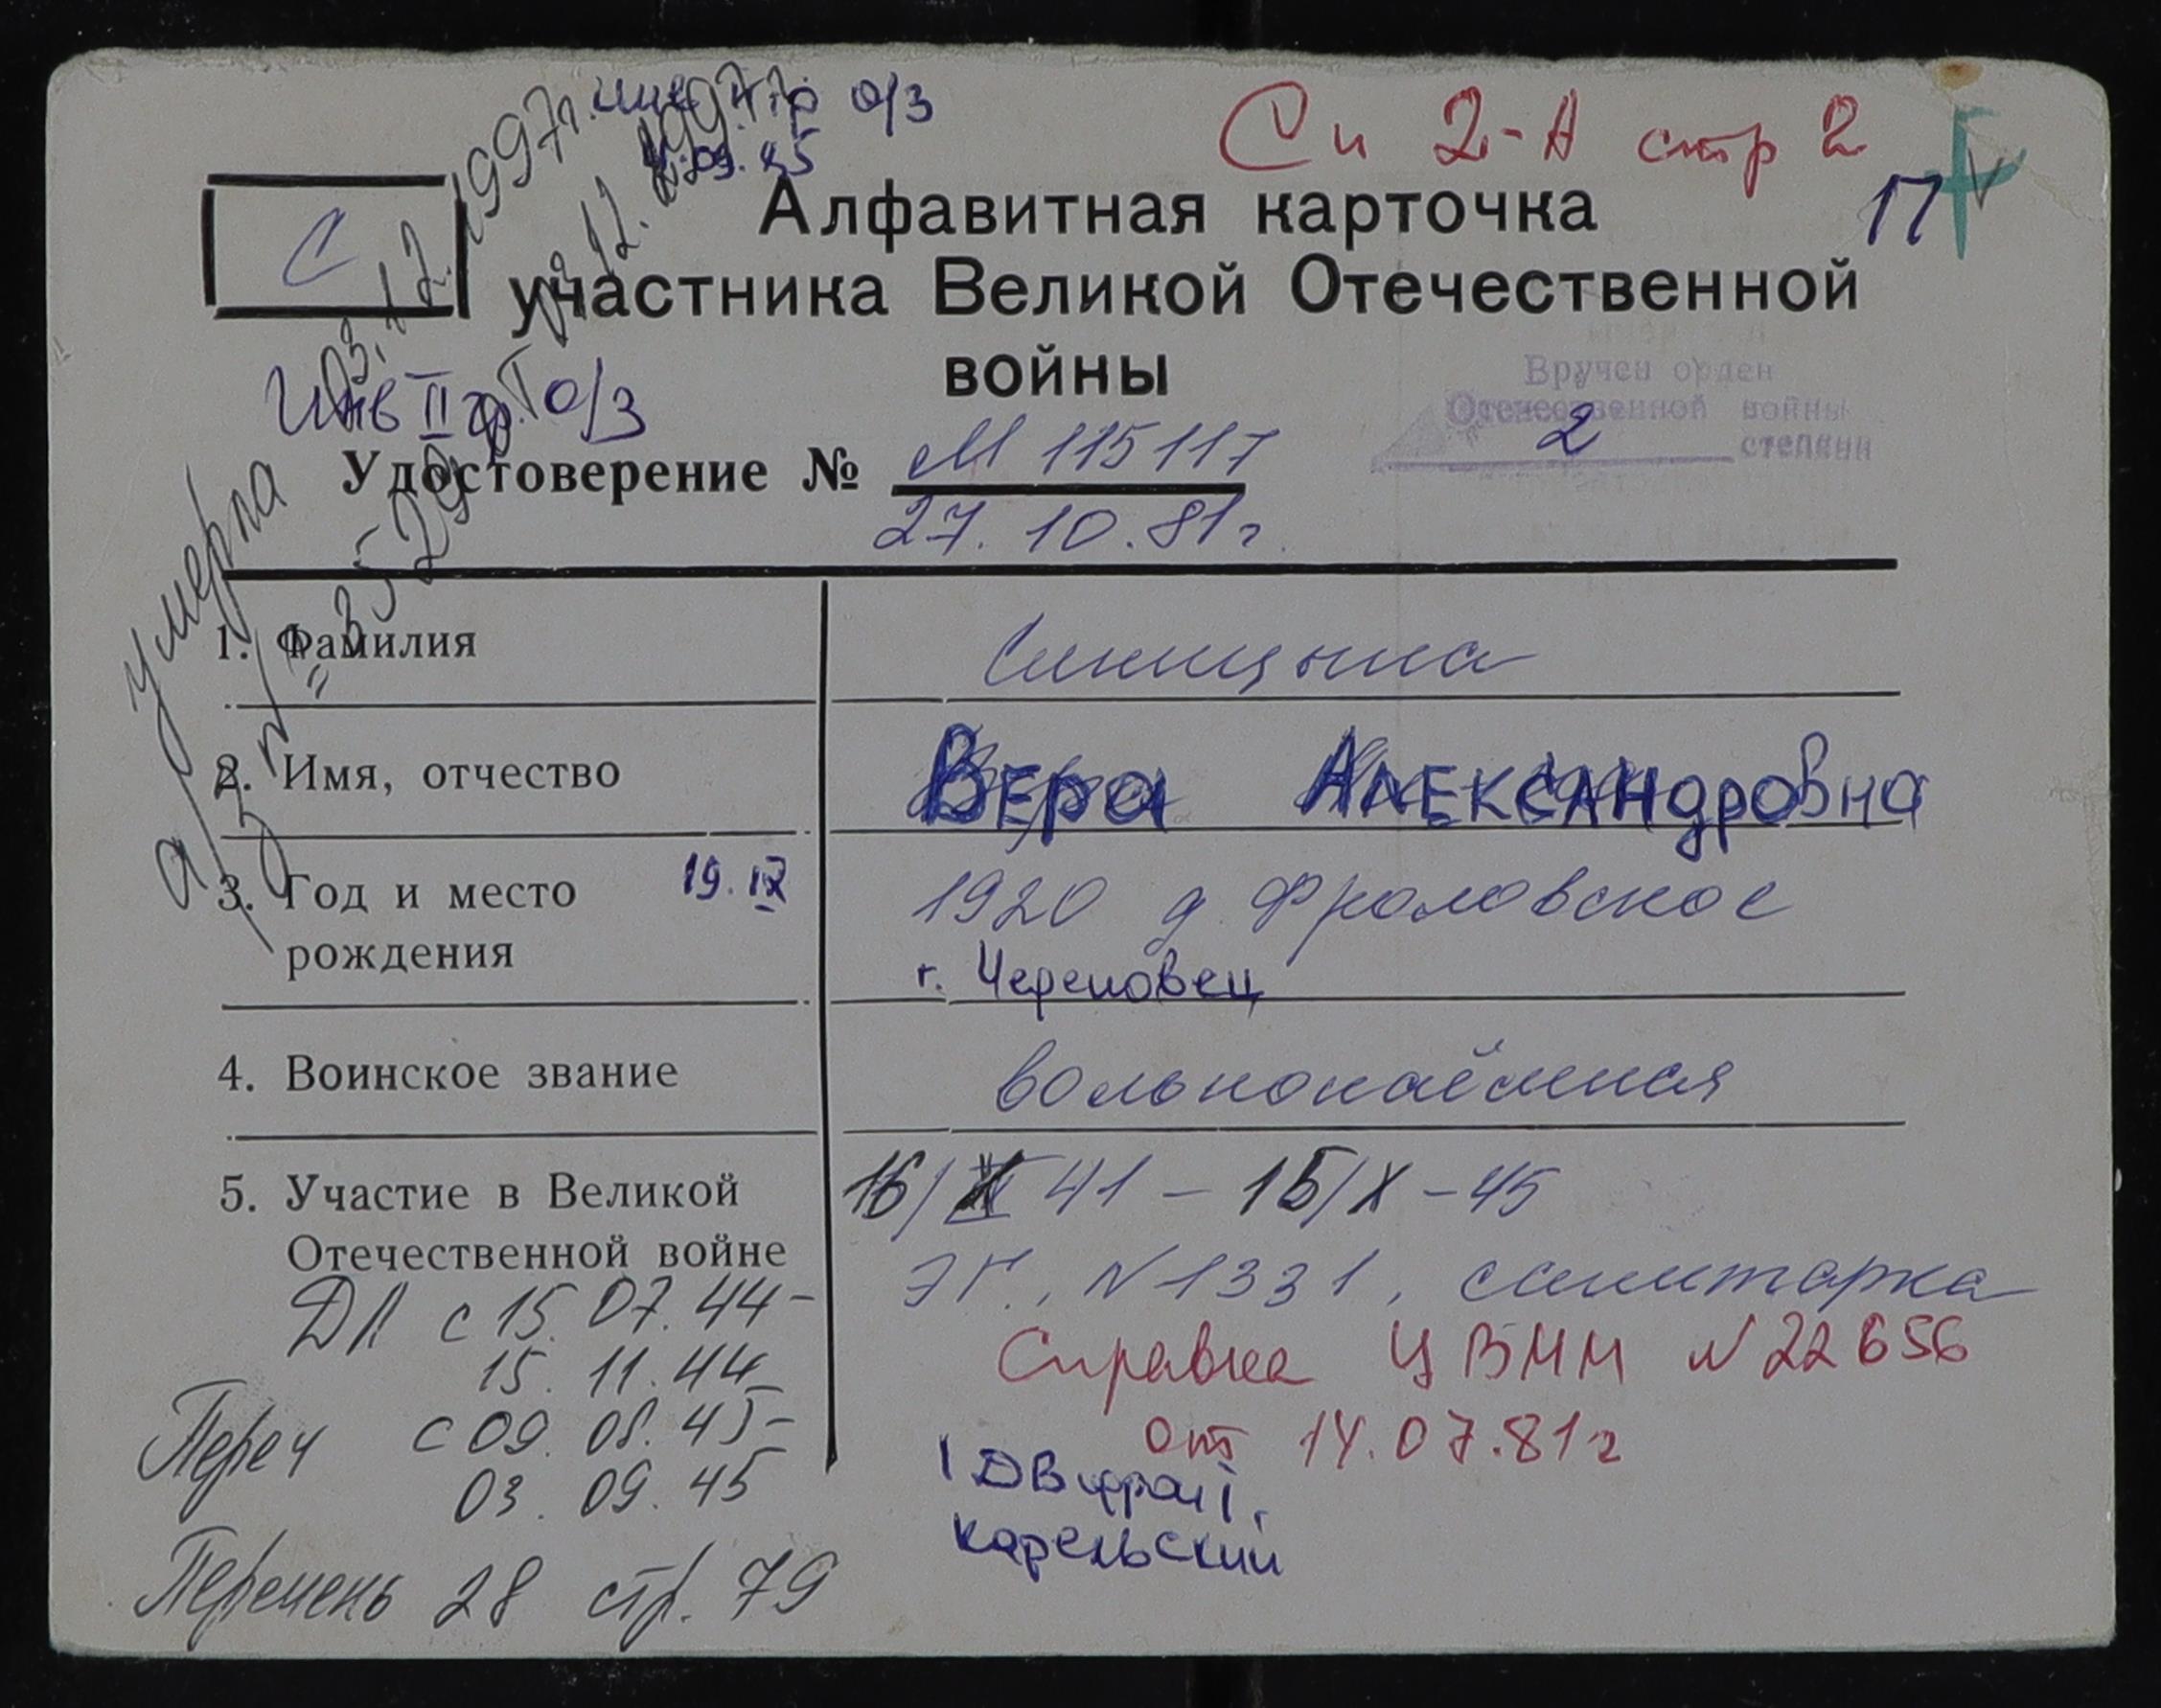 о/з
Сп 2-А стр 2
С
Алфавитная карточка
17
участника Великой Отечественной
войны
Инв II гр. о/з
Вручен орден
Отечественной войны
2 степени
Удостоверение № М 115117
27.10.81г.
умерла
03.12.1997г.
1. Фамилия Синицына
2. Имя, отчество Вера Александровна
3. Год и место 19.IX 1920 д. Фроловское
рождения г. Череповец
4. Воинское звание вольнонаёмная
5. Участие в Великой 41 – 15/X – 45
Отечественной войне ЭГ, N 1331, санитарка
ДЛ с 15.07.44-
15.11.44
Справка ЦВММ N 22656
от 14.07.81г
Переч с 09.08.45-
03.09.45
1 ДВ фронт,
карельский
Перечень 28 стр. 79